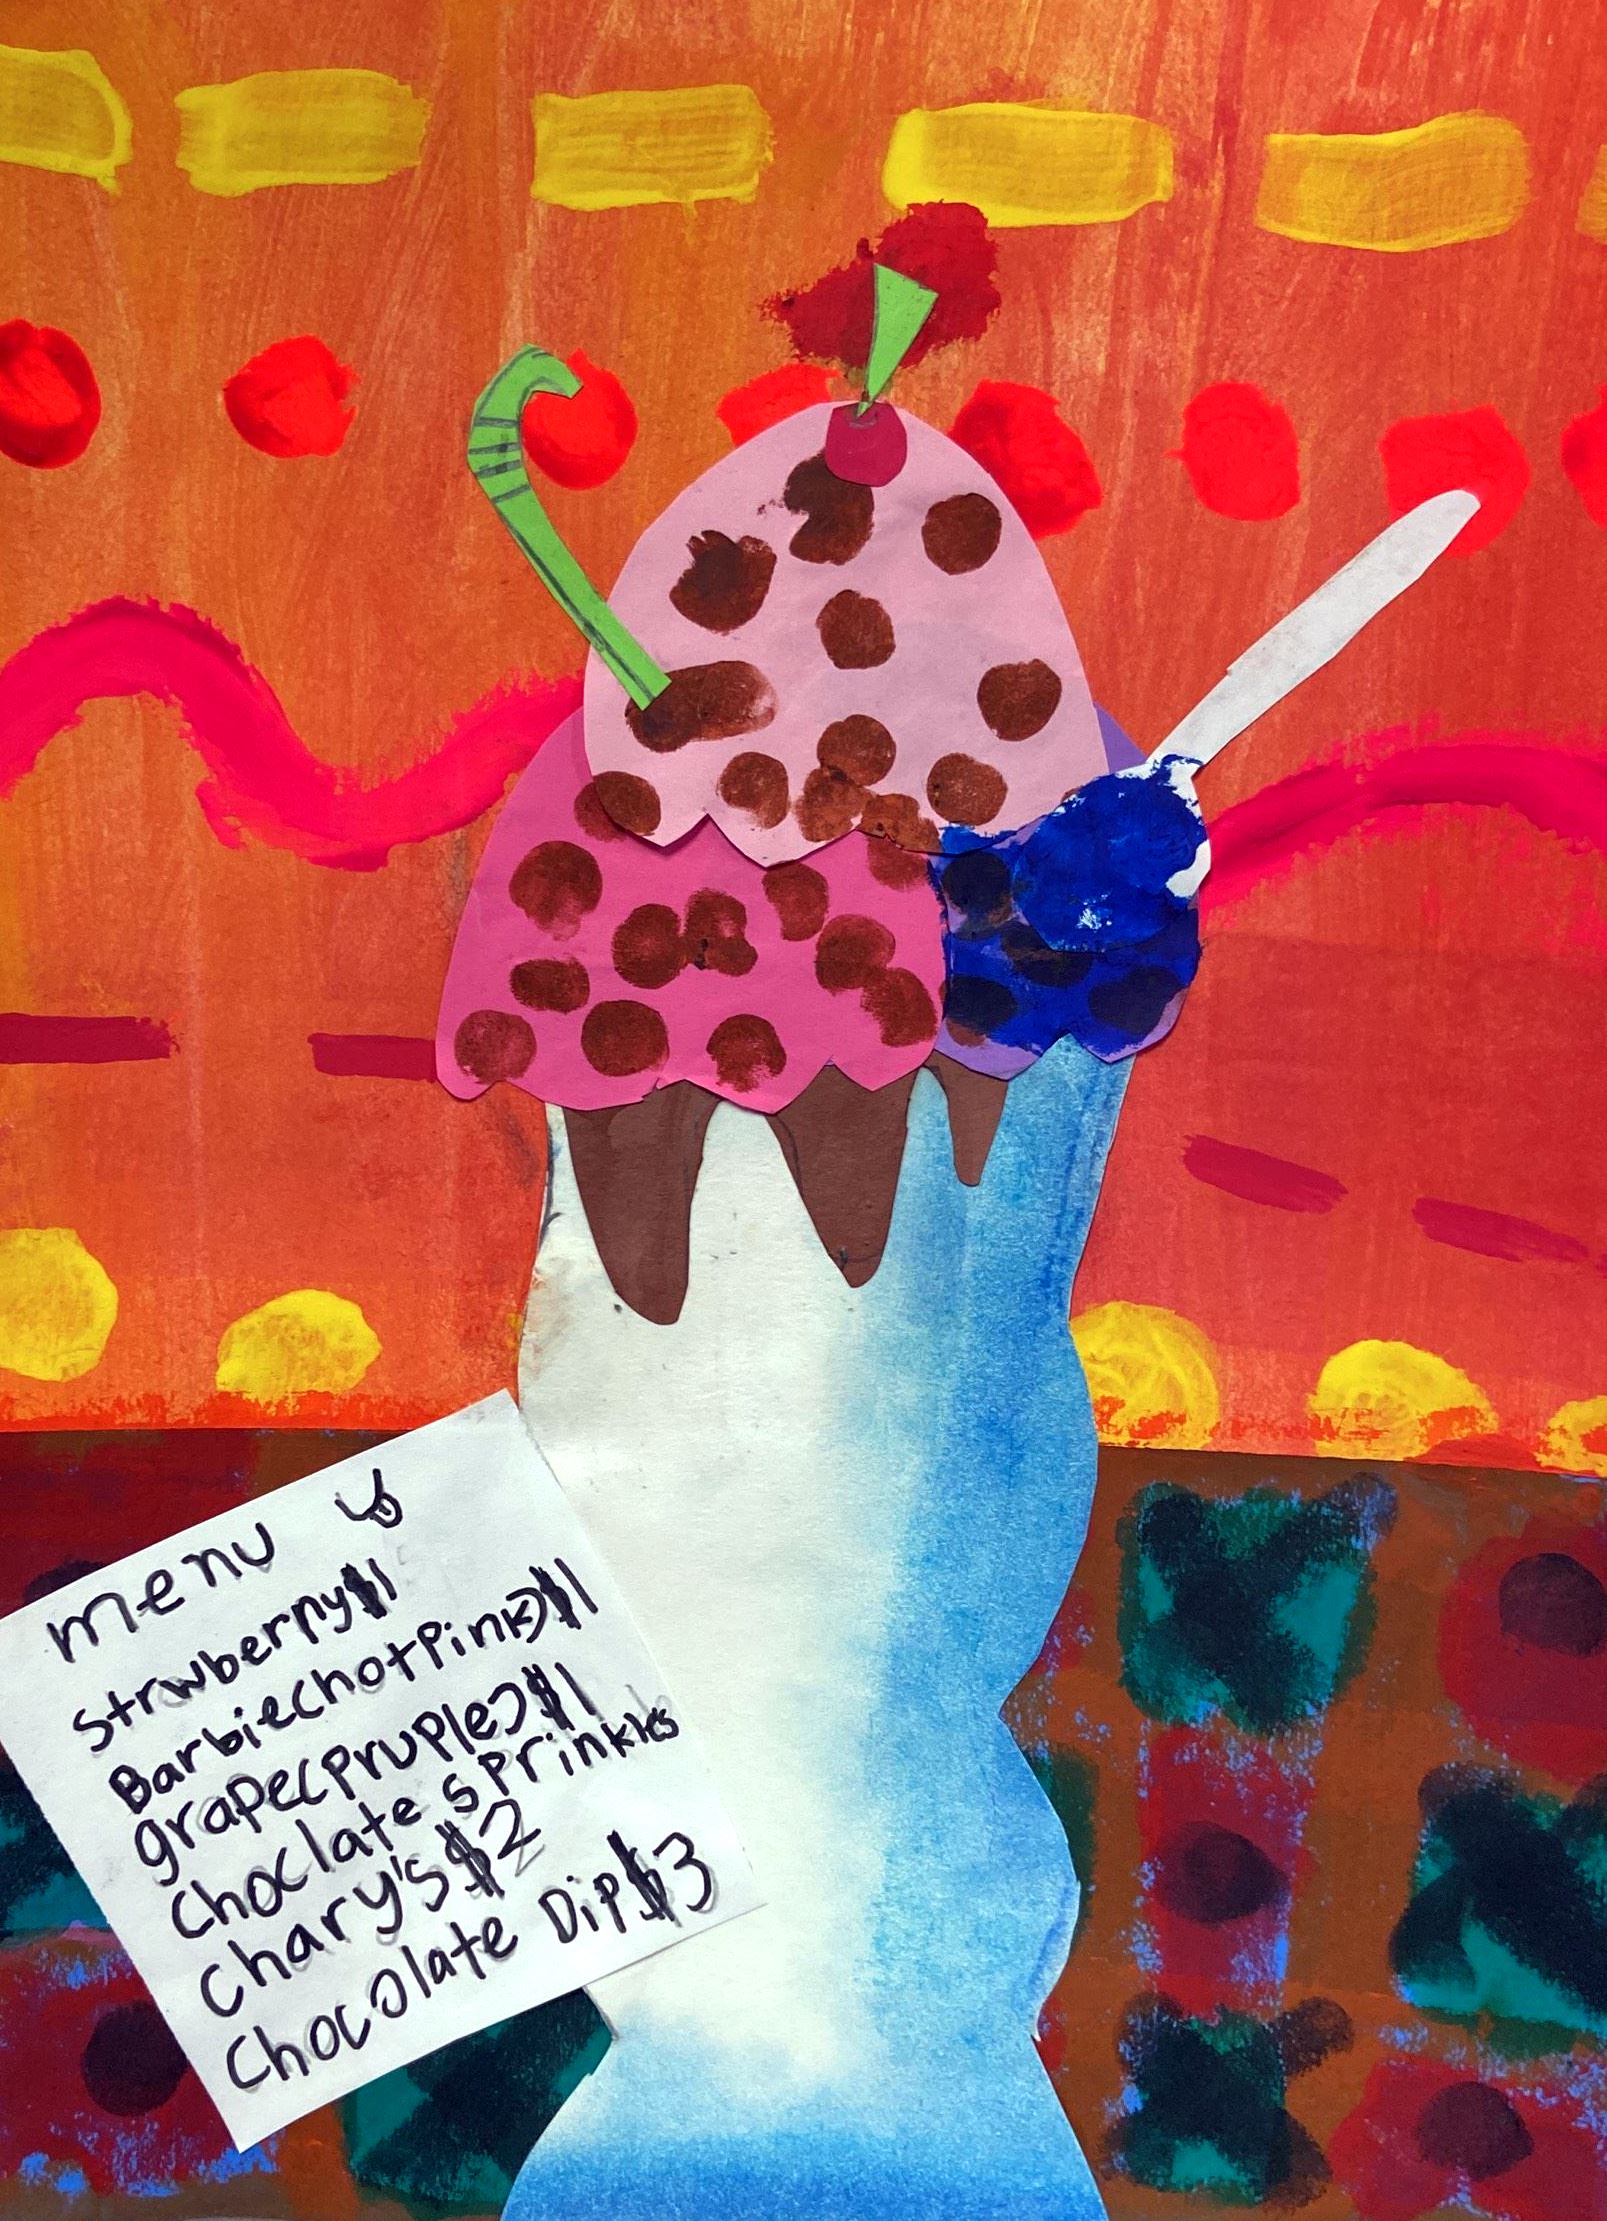 menu
Strwberry$1
Barbie(hotPink)$1
grape(pruple)$1
Choclate sPrinkles
Chary's $2
Chocolate Dip$3